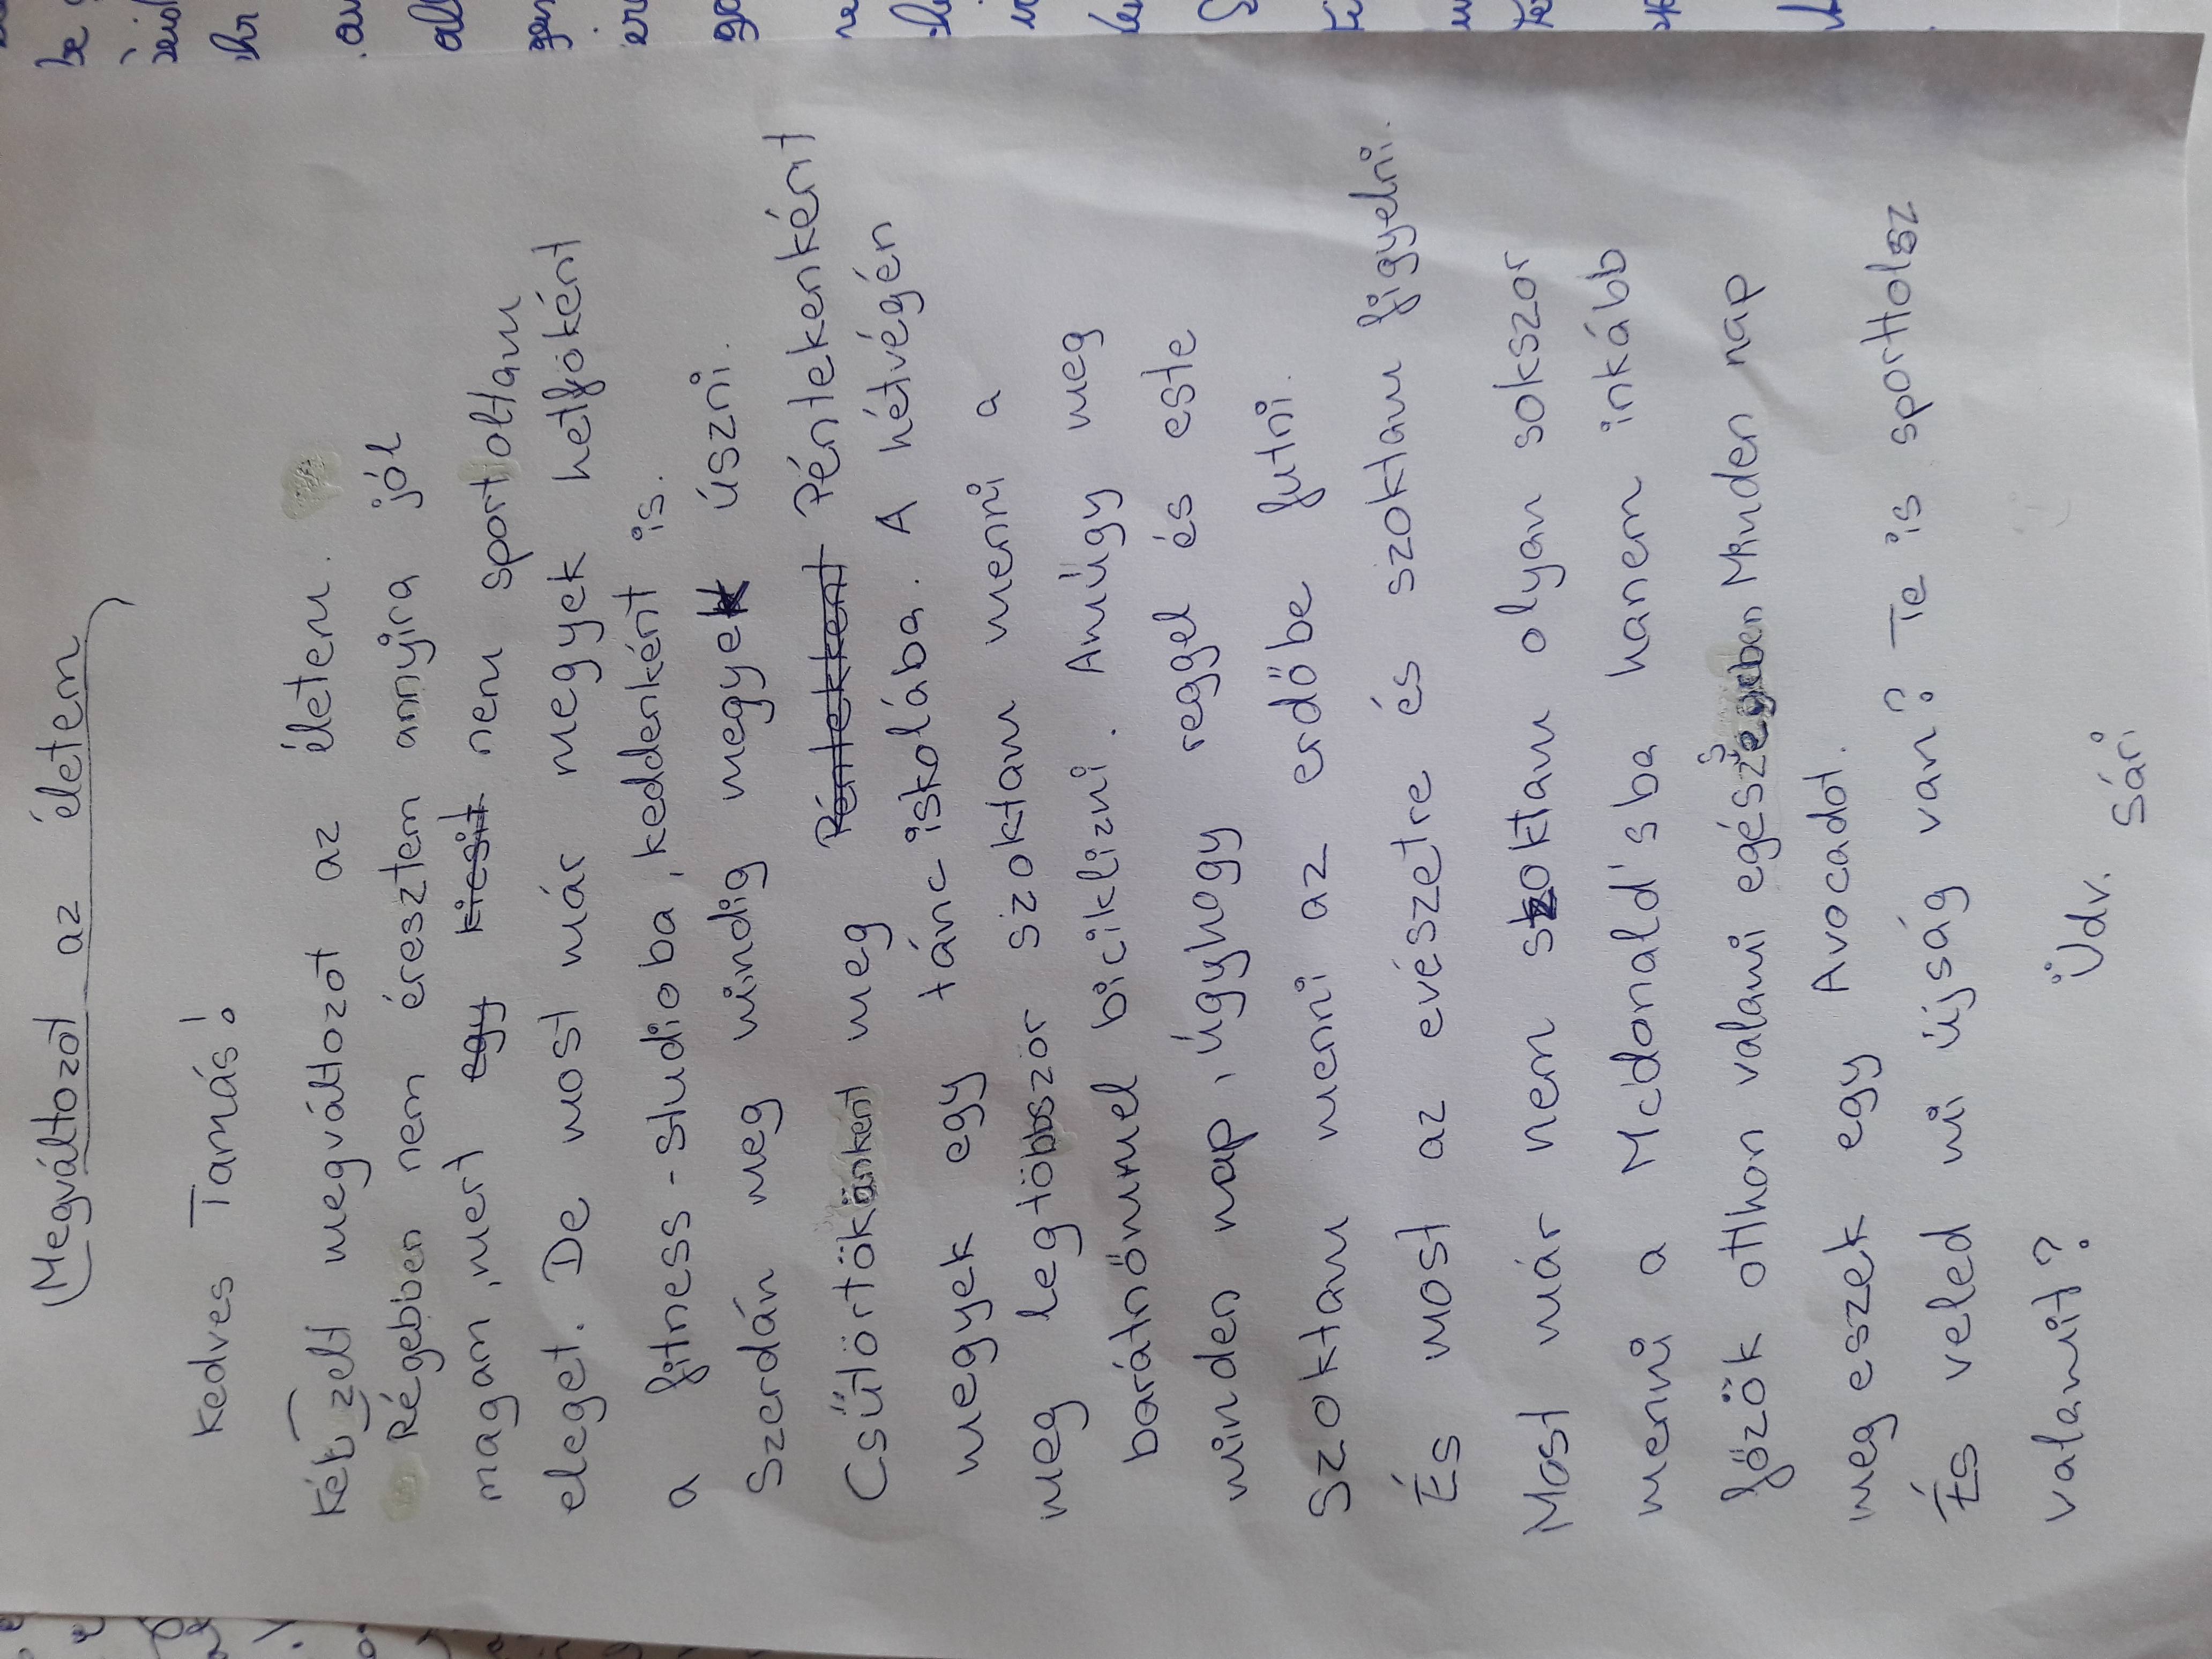 Megváltozot az életem
Kedves Tamás!
Képzelt megváltozot az életem.
Régebben nem éresztem annyira jól
magam, mert egy kicsit nem sportoltam
eleget. De most már megyek hetfőként
a fitness-studioba, keddenként is.
Szerdán meg mindig megyek úszni.
Csűtörtökänként meg Péntekként Péntekenként
megyek egy tánc iskolába. A hétvégén
meg legtöbbször szoktam menni a
barátnőmmel biciklizni. Amúgy meg
minden nap, úgyhogy reggel és este
szoktam menni az erdőbe futni.
És most az evészetre és szoktam figyelni.
Most már nem szoktam olyan sokszor
menni a Mcdonald's ba hanem inkább
főzök otthon valami egészségeben Minden nap
meg eszek egy Avocadot.
És veled mi újság van? Te is sporttolsz
valamit?
Üdv. Sári